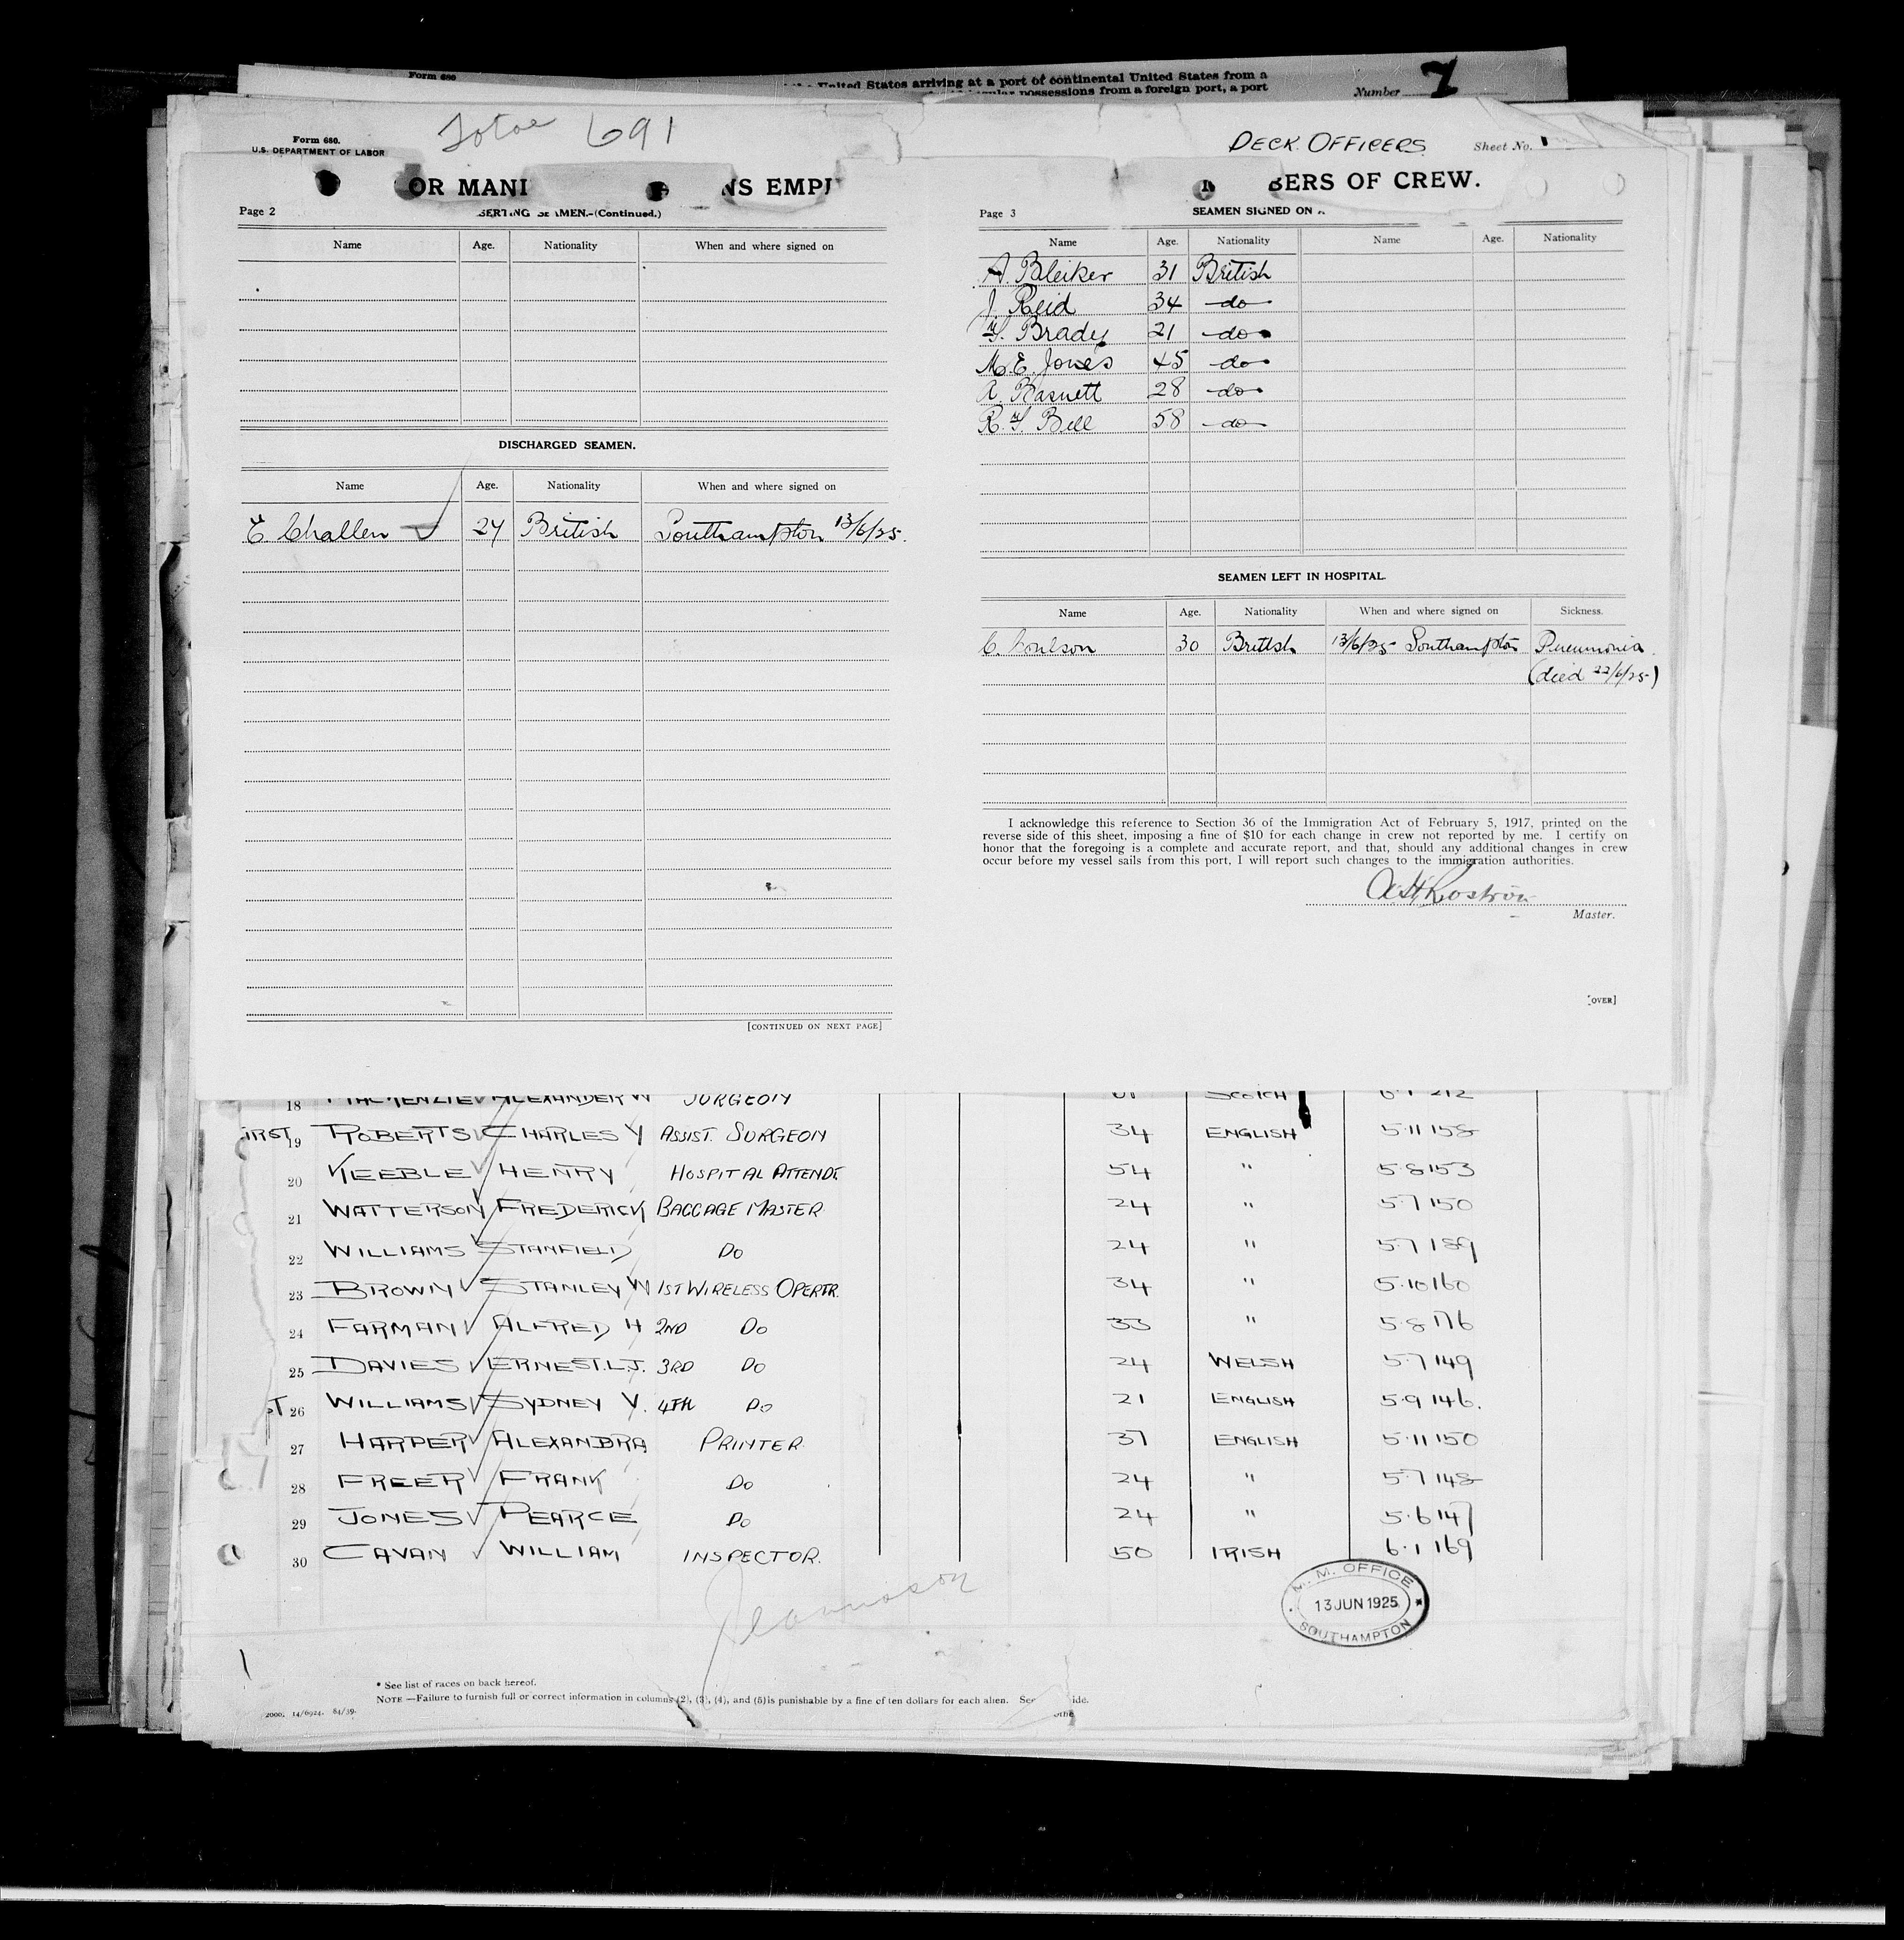 Form 680
United States arriving at a port of continental United States from a
possessions from a foreign port, a port
Number 7
Form 680.
U.S. DEPARTMENT OF LABOR
Total 691
DECK OFFICERS
Sheet No. 1
OR MANI NS EMPL
BERS OF CREW.
Page 2
SERTING SEAMEN.-(Continued.)
Page 3
SEAMEN SIGNED ON
Name Age. Nationality When and where signed on
Name Age. Nationality Name Age. Nationality
A. Bleiker 31 British
J. Reid 34 do
F. Brady 21 do
M.E. Jones 45 do
A. Basnett 28 do
R.F. Bell 58 do
DISCHARGED SEAMEN.
Name Age. Nationality When and where signed on
E. Challen 24 British Southampton 13/6/25.
SEAMEN LEFT IN HOSPITAL.
Name Age. Nationality When and where signed on Sickness.
C. Coulson 30 British 13/6/25 Southampton Pneumonia
(died 22/6/25)
I acknowledge this reference to Section 36 of the Immigration Act of February 5, 1917, printed on the
reverse side of this sheet, imposing a fine of $10 for each change in crew not reported by me. I certify on
honor that the foregoing is a complete and accurate report, and that, should any additional changes in crew
occur before my vessel sails from this port, I will report such changes to the immigration authorities.
A H Rostron
Master.
[OVER]
[CONTINUED ON NEXT PAGE]
18 MACKENZIE ALEXANDER W SURGEON SCOTCH 6·1 212
19 ROBERTS CHARLES Y ASSIST. SURGEON 34 ENGLISH 5·11 158
20 KEEBLE HENRY HOSPITAL ATTENDT. 54 " 5·8 153
21 WATTERSON FREDERICK BAGGAGE MASTER 24 " 5·7 150
22 WILLIAMS STANFIELD DO 24 " 5·7 189
23 BROWN STANLEY W 1ST WIRELESS OPERTR. 34 " 5·10 160
24 FARMAN ALFRED H 2ND DO 33 " 5·8 176
25 DAVIES ERNEST.L.J. 3RD DO 24 WELSH 5·7 149
26 WILLIAMS SYDNEY V. 4TH DO 21 ENGLISH 5·9 146.
27 HARPER ALEXANDRA PRINTER 37 ENGLISH 5·11 150
28 FREER FRANK DO 24 " 5·7 148
29 JONES PEARCE DO 24 " 5·6 147
30 CAVAN WILLIAM INSPECTOR. 50 IRISH 6·1 169
M. M. OFFICE
13 JUN 1925
SOUTHAMPTON
* See list of races on back hereof.
NOTE —Failure to furnish full or correct information in columns (2), (3), (4), and (5) is punishable by a fine of ten dollars for each alien. See ide.
2000. 14/6924. 84/39.